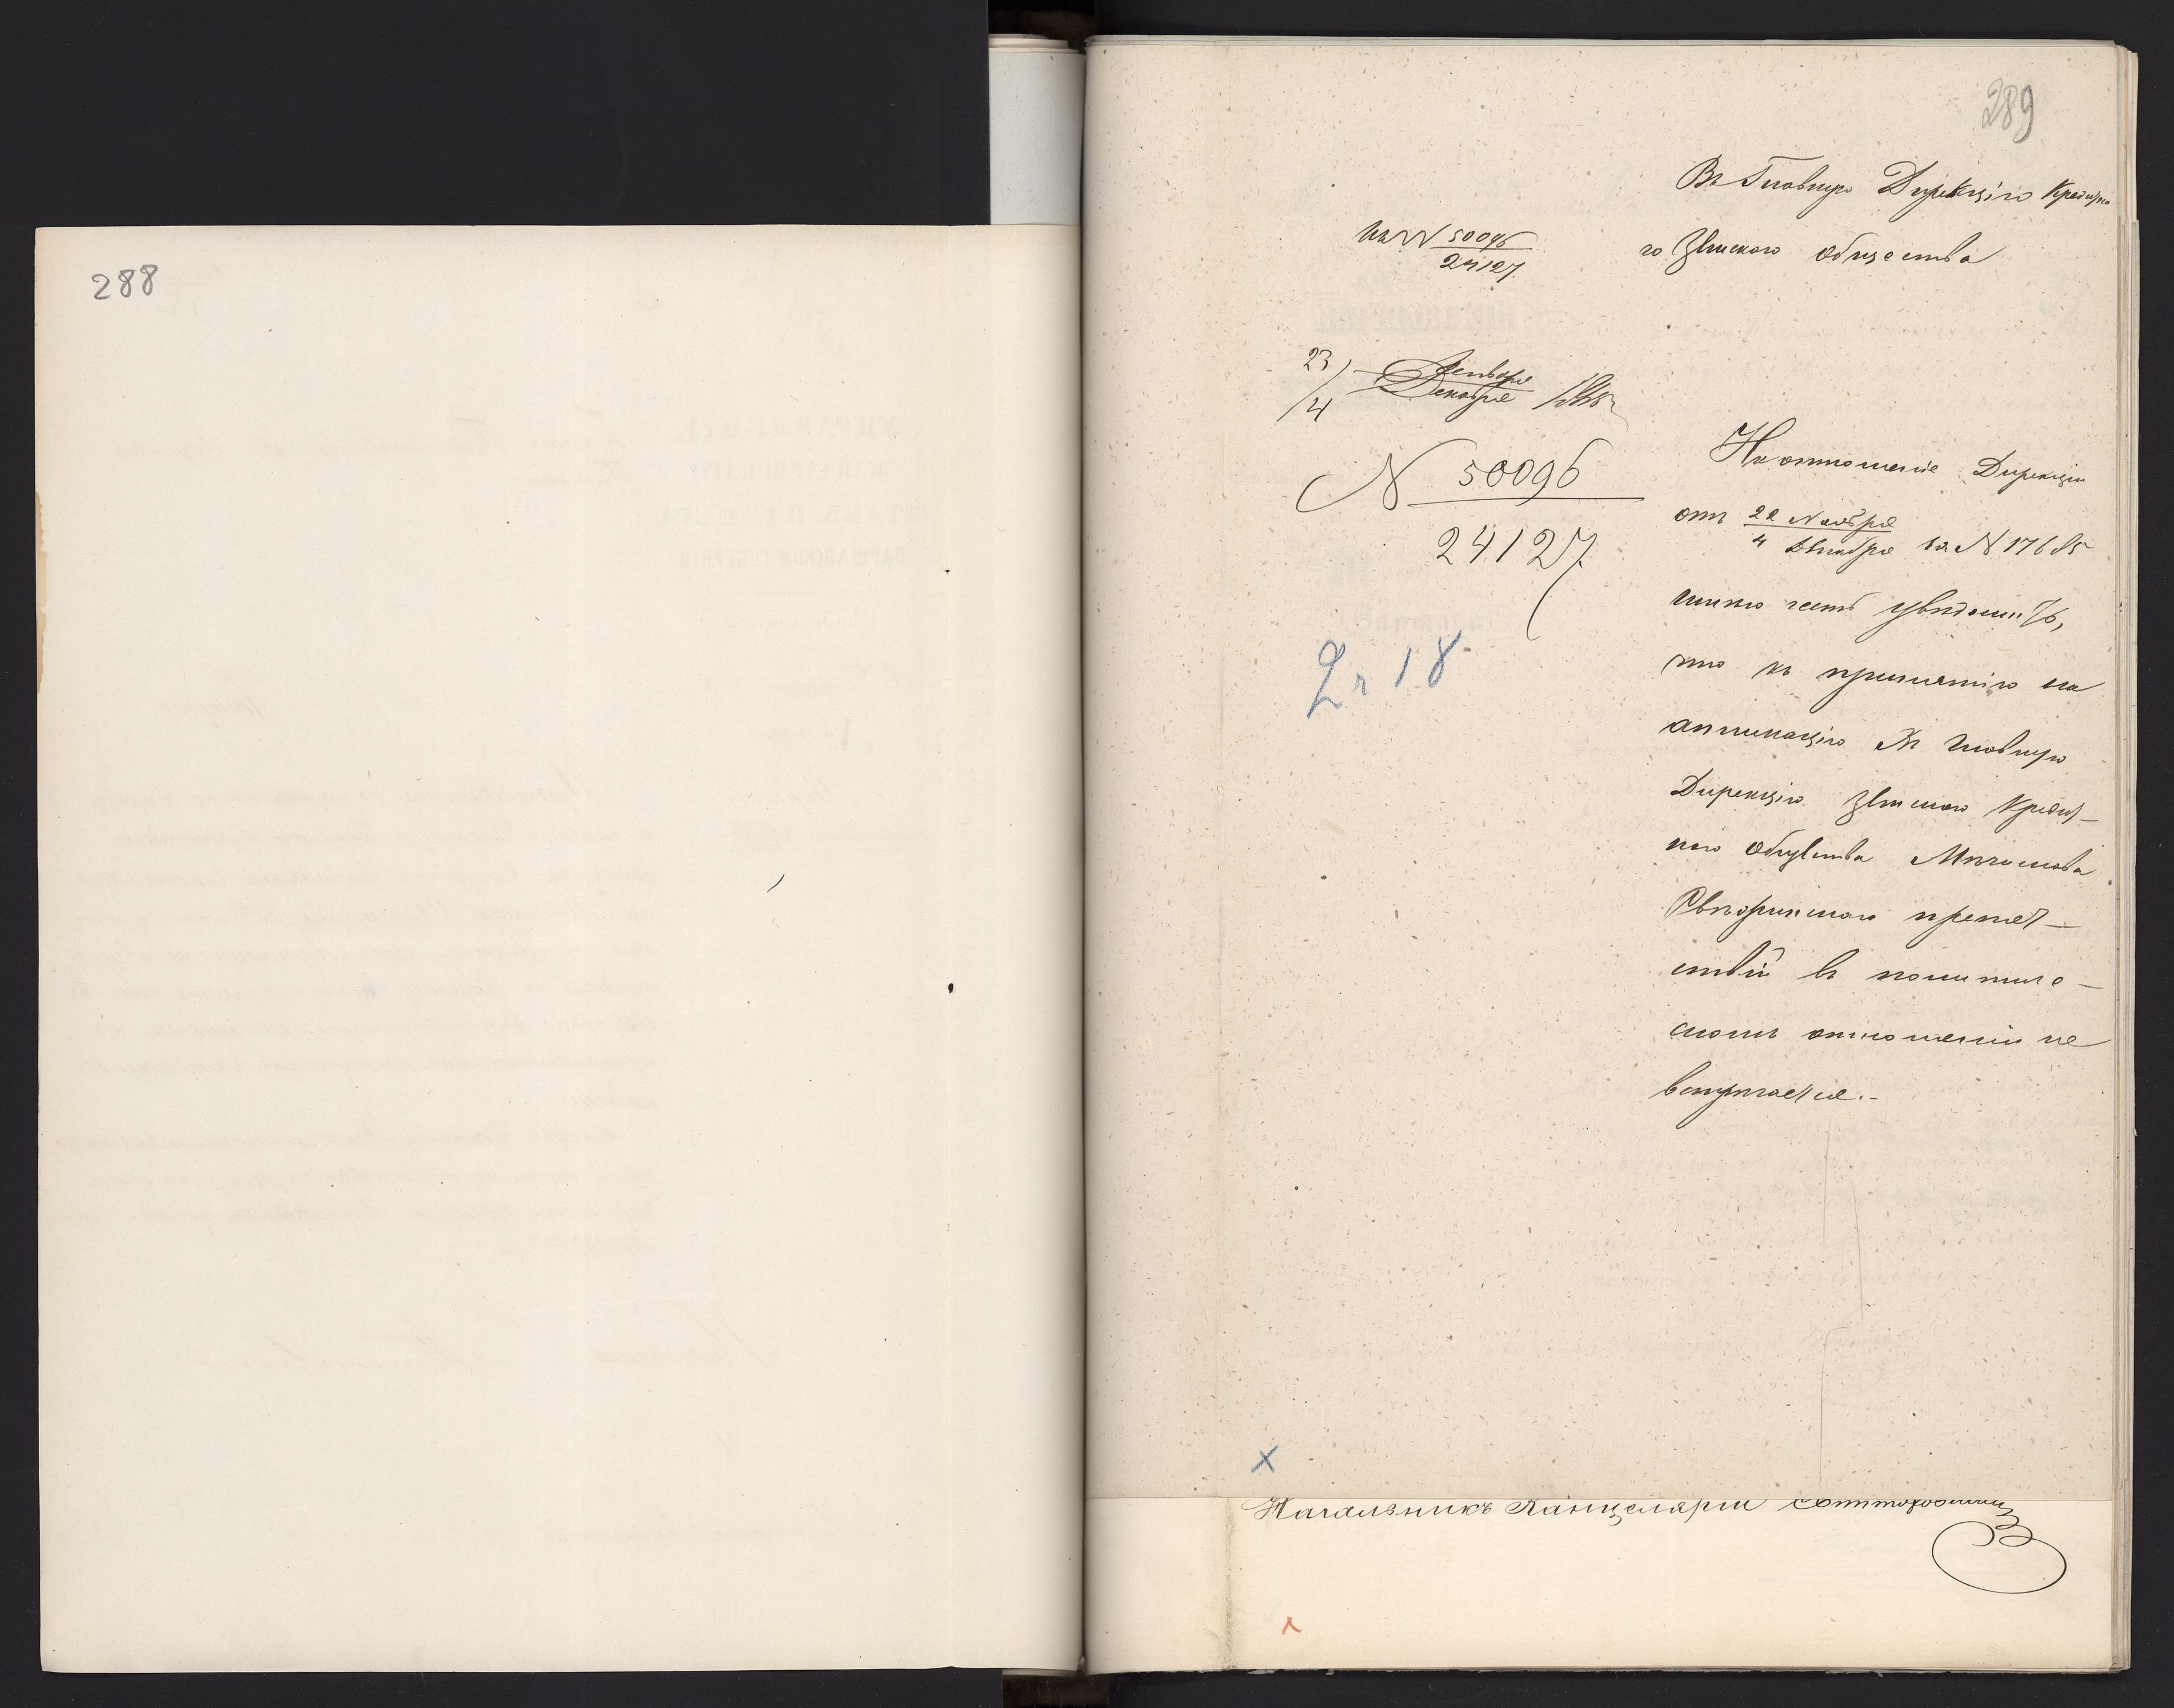 288
289
Въ Главную Дирекцію Кредитна
го Земскаго общества
на N 50096
24127
23
4
Декабря
N 50096
24127
18
На отношеніе Дирекціи
отъ 22 Ноября
4 Декабря за N 17685
имѣю честь увѣдомить,
что къ принятію на
аппликацію въ Главную
Дирекцію Земскаго Кредит-
наго Общества Мѣчислава
препят-
ствій въ политиче-
скомъ отношеніи не
встрѣчается.-
Начальникъ Канцеляріи